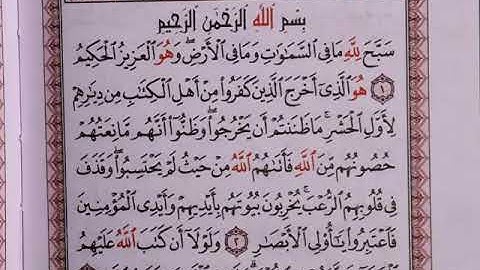 بِسْمِ اللَّهِ الرَّحْمَٰنِ الرَّحِيمِ
سَبَّحَ لِلَّهِ مَا فِي السَّمَٰوَٰتِ وَمَا فِي الْأَرْضِ ۖ وَهُوَ الْعَزِيزُ الْحَكِيمُ
١ هُوَ الَّذِي أَخْرَجَ الَّذِينَ كَفَرُوا مِنْ أَهْلِ الْكِتَٰبِ مِن دِيَٰرِهِمْ
لِأَوَّلِ الْحَشْرِ ۚ مَا ظَنَنتُمْ أَن يَخْرُجُوا ۖ وَظَنُّوا أَنَّهُم مَّانِعَتُهُمْ
حُصُونُهُم مِّنَ اللَّهِ فَأَتَىٰهُمُ اللَّهُ مِنْ حَيْثُ لَمْ يَحْتَسِبُوا ۖ وَقَذَفَ
فِي قُلُوبِهِمُ الرُّعْبَ ۚ يُخْرِبُونَ بُيُوتَهُم بِأَيْدِيهِمْ وَأَيْدِي الْمُؤْمِنِينَ
فَاعْتَبِرُوا يَٰٓأُولِي الْأَبْصَٰرِ ٢ وَلَوْلَا أَن كَتَبَ اللَّهُ عَلَيْهِمُ